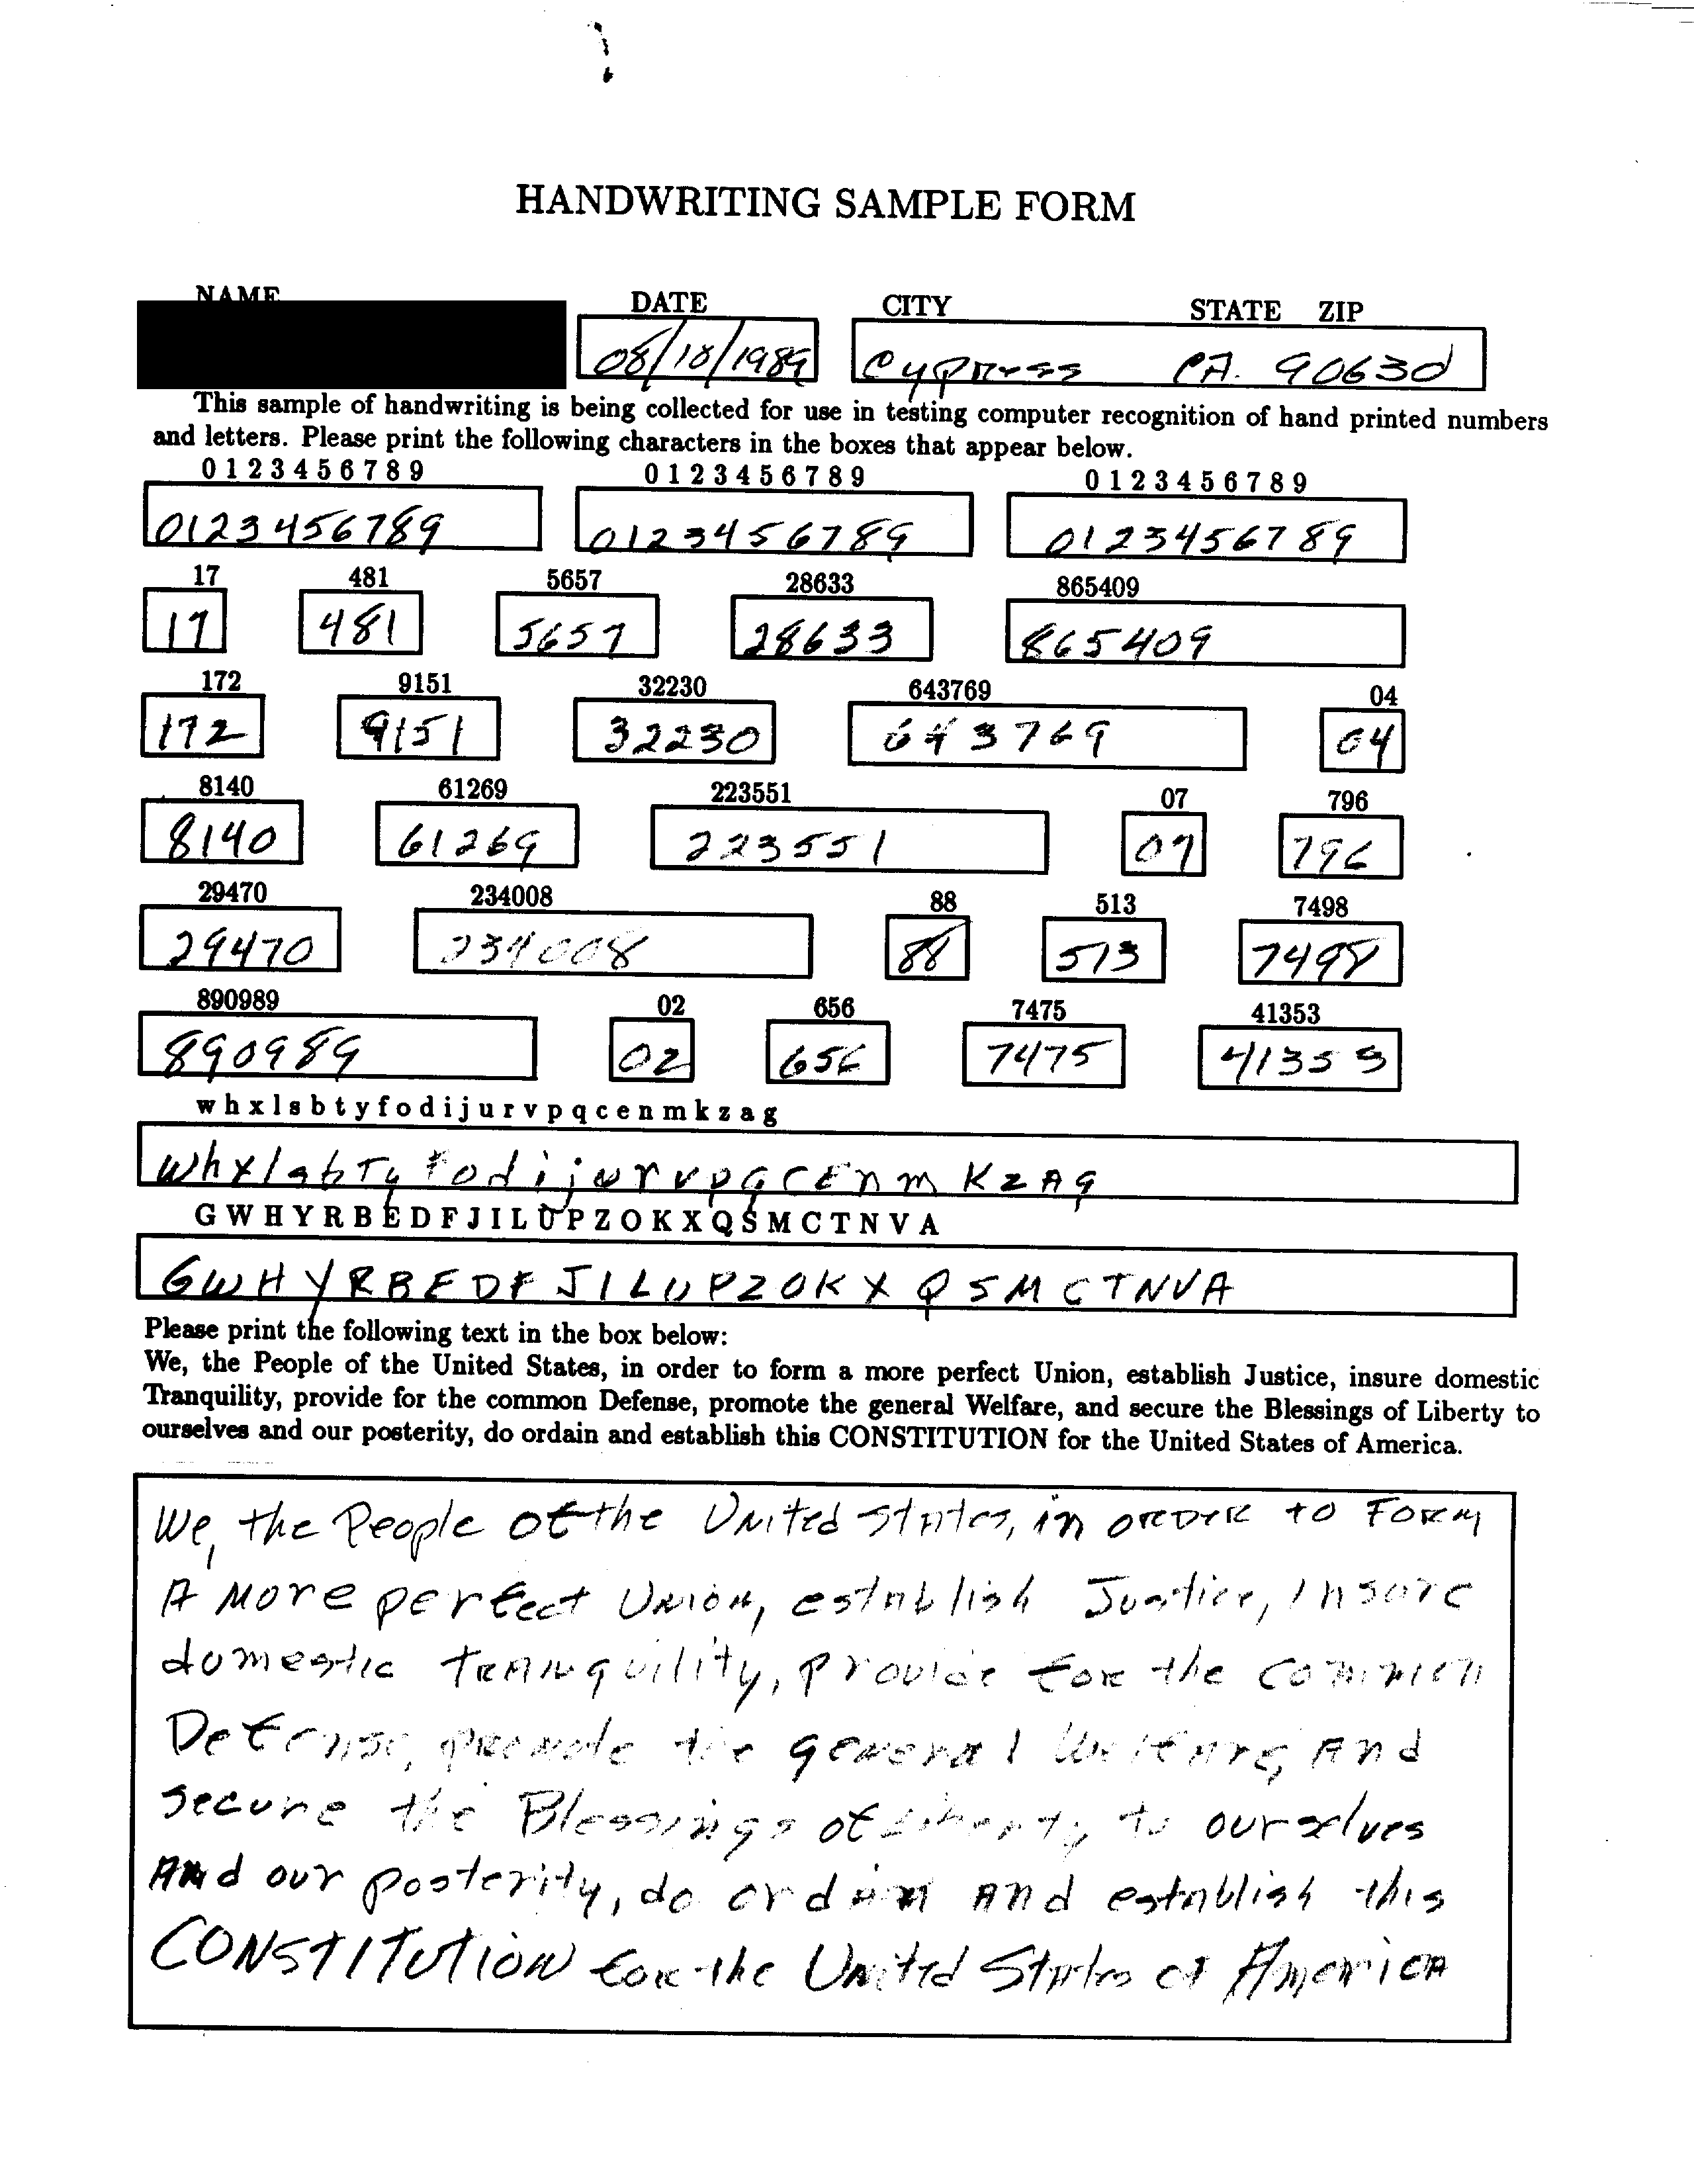 HANDWRITING SAMPLE FORM
NAME DATE CITY STATE ZIP
08/18/1989 Cypress CA. 90630
This sample of handwriting is being collected for use in testing computer recognition of hand printed numbers
and letters. Please print the following characters in the boxes that appear below.
0 1 2 3 4 5 6 7 8 9 0 1 2 3 4 5 6 7 8 9 0 1 2 3 4 5 6 7 8 9
0123456789 0123456789 0123456789
17 481 5657 28633 865409
17 481 5657 28633 865409
172 9151 32230 643769 04
172 9151 32230 643769 04
8140 61269 223551 07 796
8140 61269 223551 07 796
29470 234008 88 513 7498
29470 234008 88 513 7498
890989 02 656 7475 41353
890989 02 656 7475 41353
w h x l s b t y f o d i j u r v p q c e n m k z a g
whxlsbTyFodijurvpqcEnmKzAg
G W H Y R B E D F J I L U P Z O K X Q S M C T N V A
GWHYRBEDFJILUPZOKXQSMCTNVA
Please print the following text in the box below:
We, the People of the United States, in order to form a more perfect Union, establish Justice, insure domestic
Tranquility, provide for the common Defense, promote the general Welfare, and secure the Blessings of Liberty to
ourselves and our posterity, do ordain and establish this CONSTITUTION for the United States of America.
We, the People of the United States, in ORDER to FORM
A More perfect Union, establish Justice, Insure
domestic tranquility, provide for the common
Defense, promote the general Welfare, And
secure the Blessings of Liberty to ourselves
And our posterity, do ordain And establish this
CONSTITUTION for the United States of America